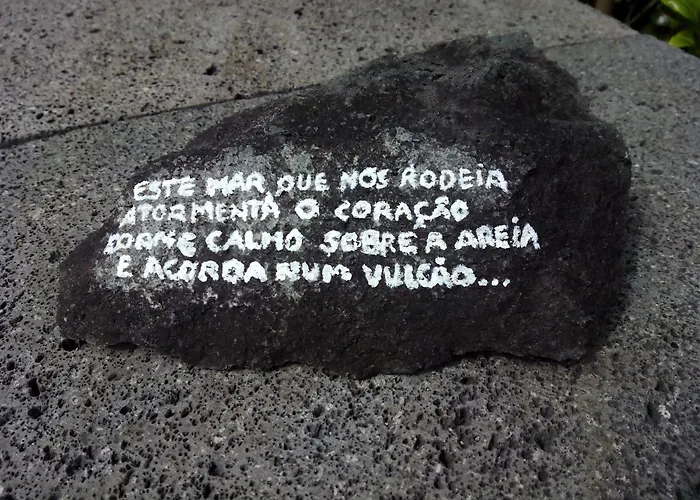 ESTE MAR QUE NOS RODEIA
ATORMENTA O CORAÇÃO
DORME CALMO SOBRE A AREIA
E ACORDA NUM VULCÃO...